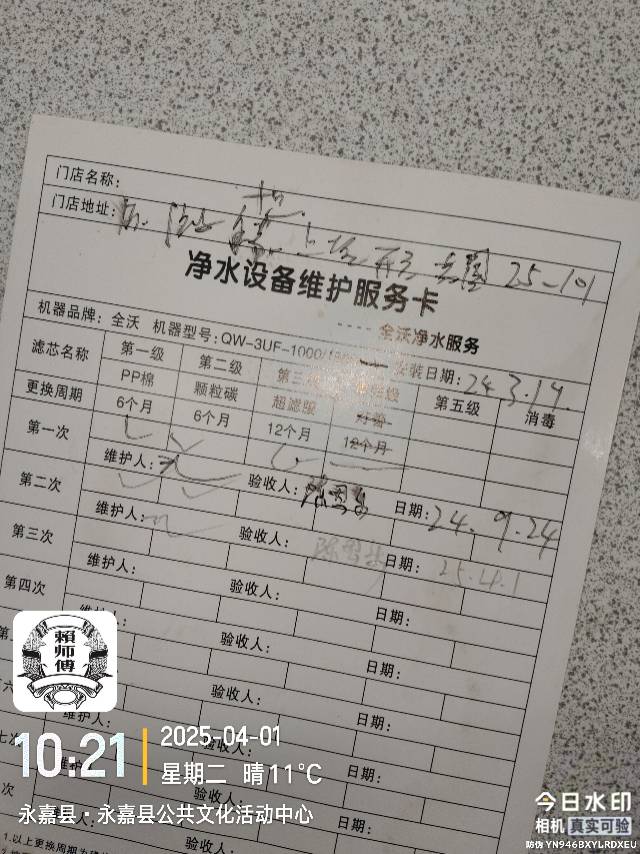 门店名称:
门店地址: 25-101
净水设备维护服务卡
全沃净水服务
机器品牌:全沃 机器型号:QW-3UF-1000 安装日期:24.3.19.
滤芯名称 第一级 第二级 第三级 第五级 消毒
PP棉 颗粒碳 超滤膜
更换周期 6个月 6个月 12个月 12个月
第一次
维护人: 验收人: 日期:24.9.24
第二次
维护人: 验收人: 日期:25.4.1
第三次
维护人: 验收人: 日期:
第四次
维护人: 验收人: 日期:
验收人: 日期:
维护人: 验收人: 日期:
维护人: 验收人: 日期:
賴师傅
10.21
2025-04-01
星期二 晴11℃
永嘉县·永嘉县公共文化活动中心
今日水印
相机 真实可验
防伪 YN946BXYLRDXEU